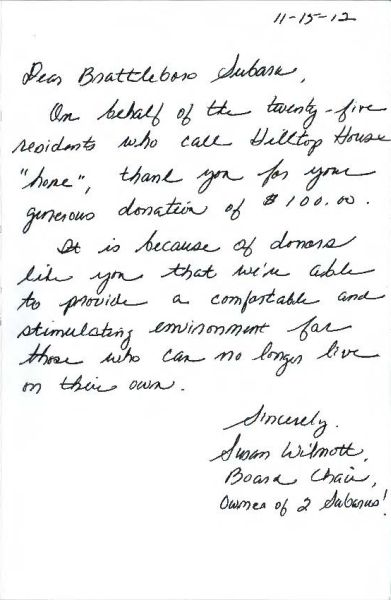 11-15-12
Dear Brattleboro Subaru,
On behalf of the twenty-five
residents who call Hilltop House
"home", thank you for your
generous donation of $100.00.
It is because of donors
like you that we're able
to provide a comfortable and
stimulating environment for
those who can no longer live
on their own.
Sincerely,
Susan Wilmott,
Board Chair,
Owner of 2 Subarus!